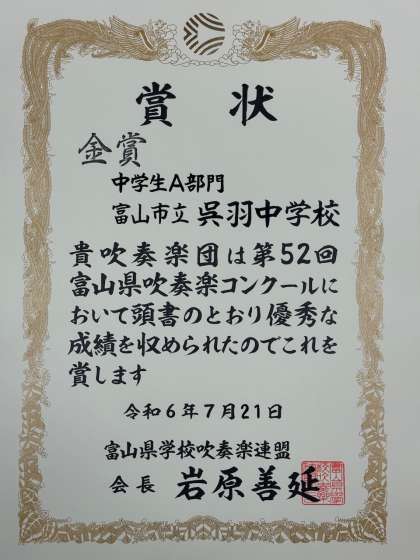 賞状
金賞
中学生A部門
富山市立 呉羽中学校
貴吹奏楽団は第52回
富山県吹奏楽コンクールに
おいて頭書のとおり優秀な
成績を収められたのでこれを
賞します
令和6年7月21日
富山県学校吹奏楽連盟
会長 岩原善延